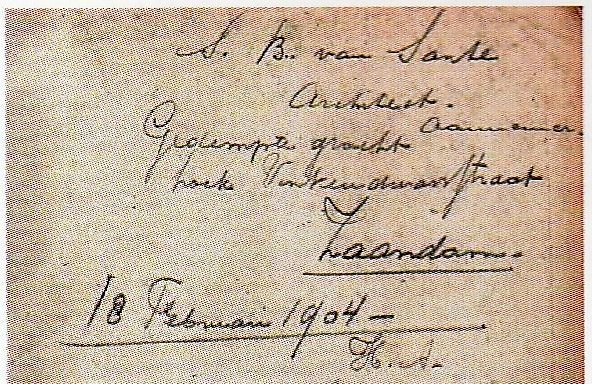 S. B. van Sante
Architect.
Aannemer.
Gedempte gracht
hoek Vinkendwarsstraat
Zaandam.
18 Februari 1904 –